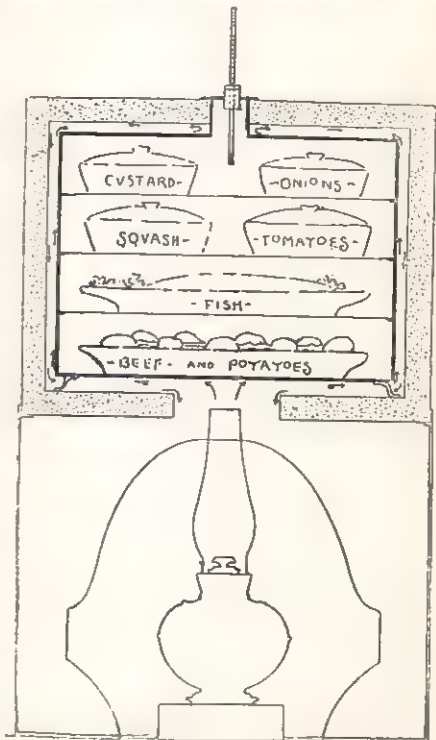 CVSTARD-
-ONIONS-
SQVASH-
-TOMATOES-
- FISH -
-BEEF- AND POTATOES